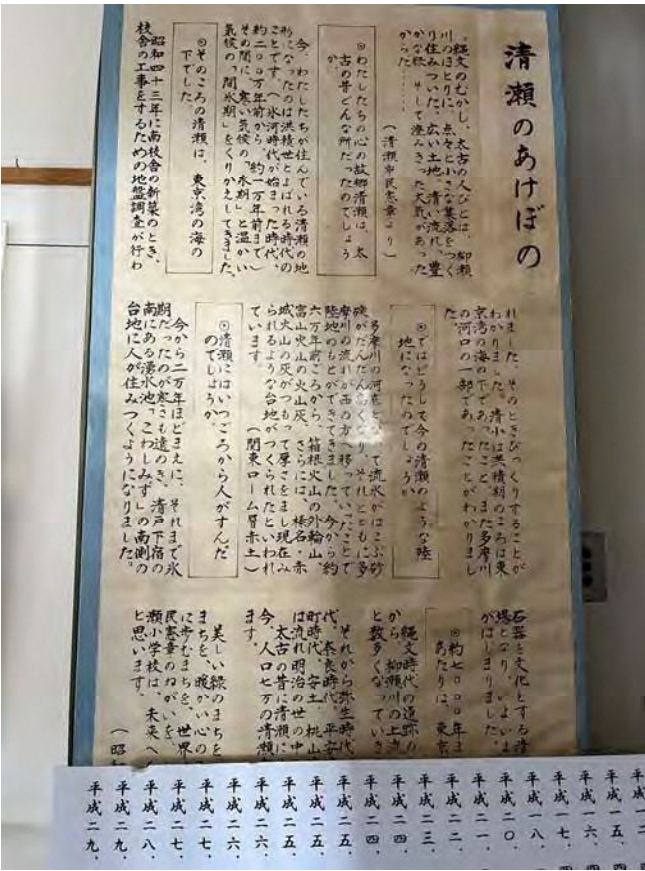 清瀬のあけぼの
縄文のむかし、太古の人びとは、柳瀬
川のほとりに、点々と小さな集落をつく
り住みついた。広い土地、清い流れ、豊
かな緑、そして澄みきった大気があった
からだ……
(清瀬市民憲章より)
◎わたしたちの心の故郷清瀬は、太
古の昔どんな所だったのでしょう
か。
今、わたしたちが住んでいる清瀬の地
形になったのは洪積世とよばれる時代の
ことです。(氷河時代が始まった時代、
約二〇〇万年前から、約一万年前まで)
その間に、寒い気候の「氷期」と温かい
気候の「間氷期」をくりかえしてきました。
◎そのころの清瀬は、東京湾の海の
下でした。
昭和四十三年に南校舎の新築のとき、
校舎の工事をするための地盤調査が行わ
れました。そのときびっくりすることが
わかりました。清小は洪積期のころは東
京湾の海の下であったこと、また多摩川
の河口の一部であったことがわかりまし
た。
◎ではどうして今の清瀬のような陸
地になったのでしょうか
多摩川の河底となって流水がはこぶ砂
礫がだんだん高くなり、それとともに多
摩川の流れが西の方へ移っていったことで
陸地のもとができてきました。今から約
六万年前ころから、箱根火山の外輪山、
富山火山の火山灰、さらには、榛名・赤
城火山の灰がつもって厚さをまし現在み
られるような台地がつくられたといわれ
ています。
(関東ローム層赤土)
◎清瀬にはいつごろから人がすんだ
のでしょうか。
今から二万年ほどまえに、それまで氷
期だったのが寒さも遠のき、清戸下宿の
南にある湧水池「こわしみず」の南側の
台地に人が住みつくようになりました。
石器を文化とする清
場となり、いよいよ
がはじまりました。
◎約七〇〇〇年ま
あたりは、東京
縄文時代の遺跡の
から、柳瀬川の上流
と数多くなっていき
それから弥生時代
代、奈良時代、平安
町時代、安土、桃山
は流れ明治の世の中
太古の昔に清瀬に
今、人口七万の清瀬
ます。
美しい緑のまちを
まちを、暖かい心の
に歩むまちを、世界
民憲章のねがいを
瀬小学校は、未来へ
と思います。
(昭和
平成一五.
平成一六.
平成一七.
平成一八.
平成二〇.
平成二一.
平成二二.
平成二三.
平成二四.
平成二四.
平成二五.
平成二五.
平成二五.
平成二六.
平成二六.
平成二七.
平成二七.
平成二八.
平成二九.
平成二九.